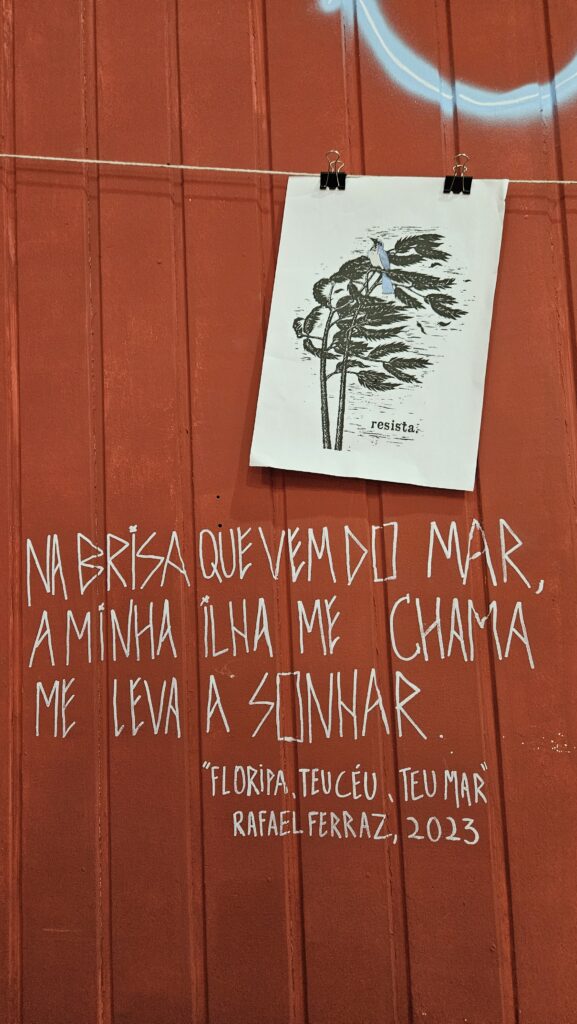 resista.
NA BRISA QUE VEM DO MAR,
A MINHA ILHA ME CHAMA
ME LEVA A SONHAR.
"FLORIPA, TEU CÉU, TEU MAR"
RAFAEL FERRAZ, 2023